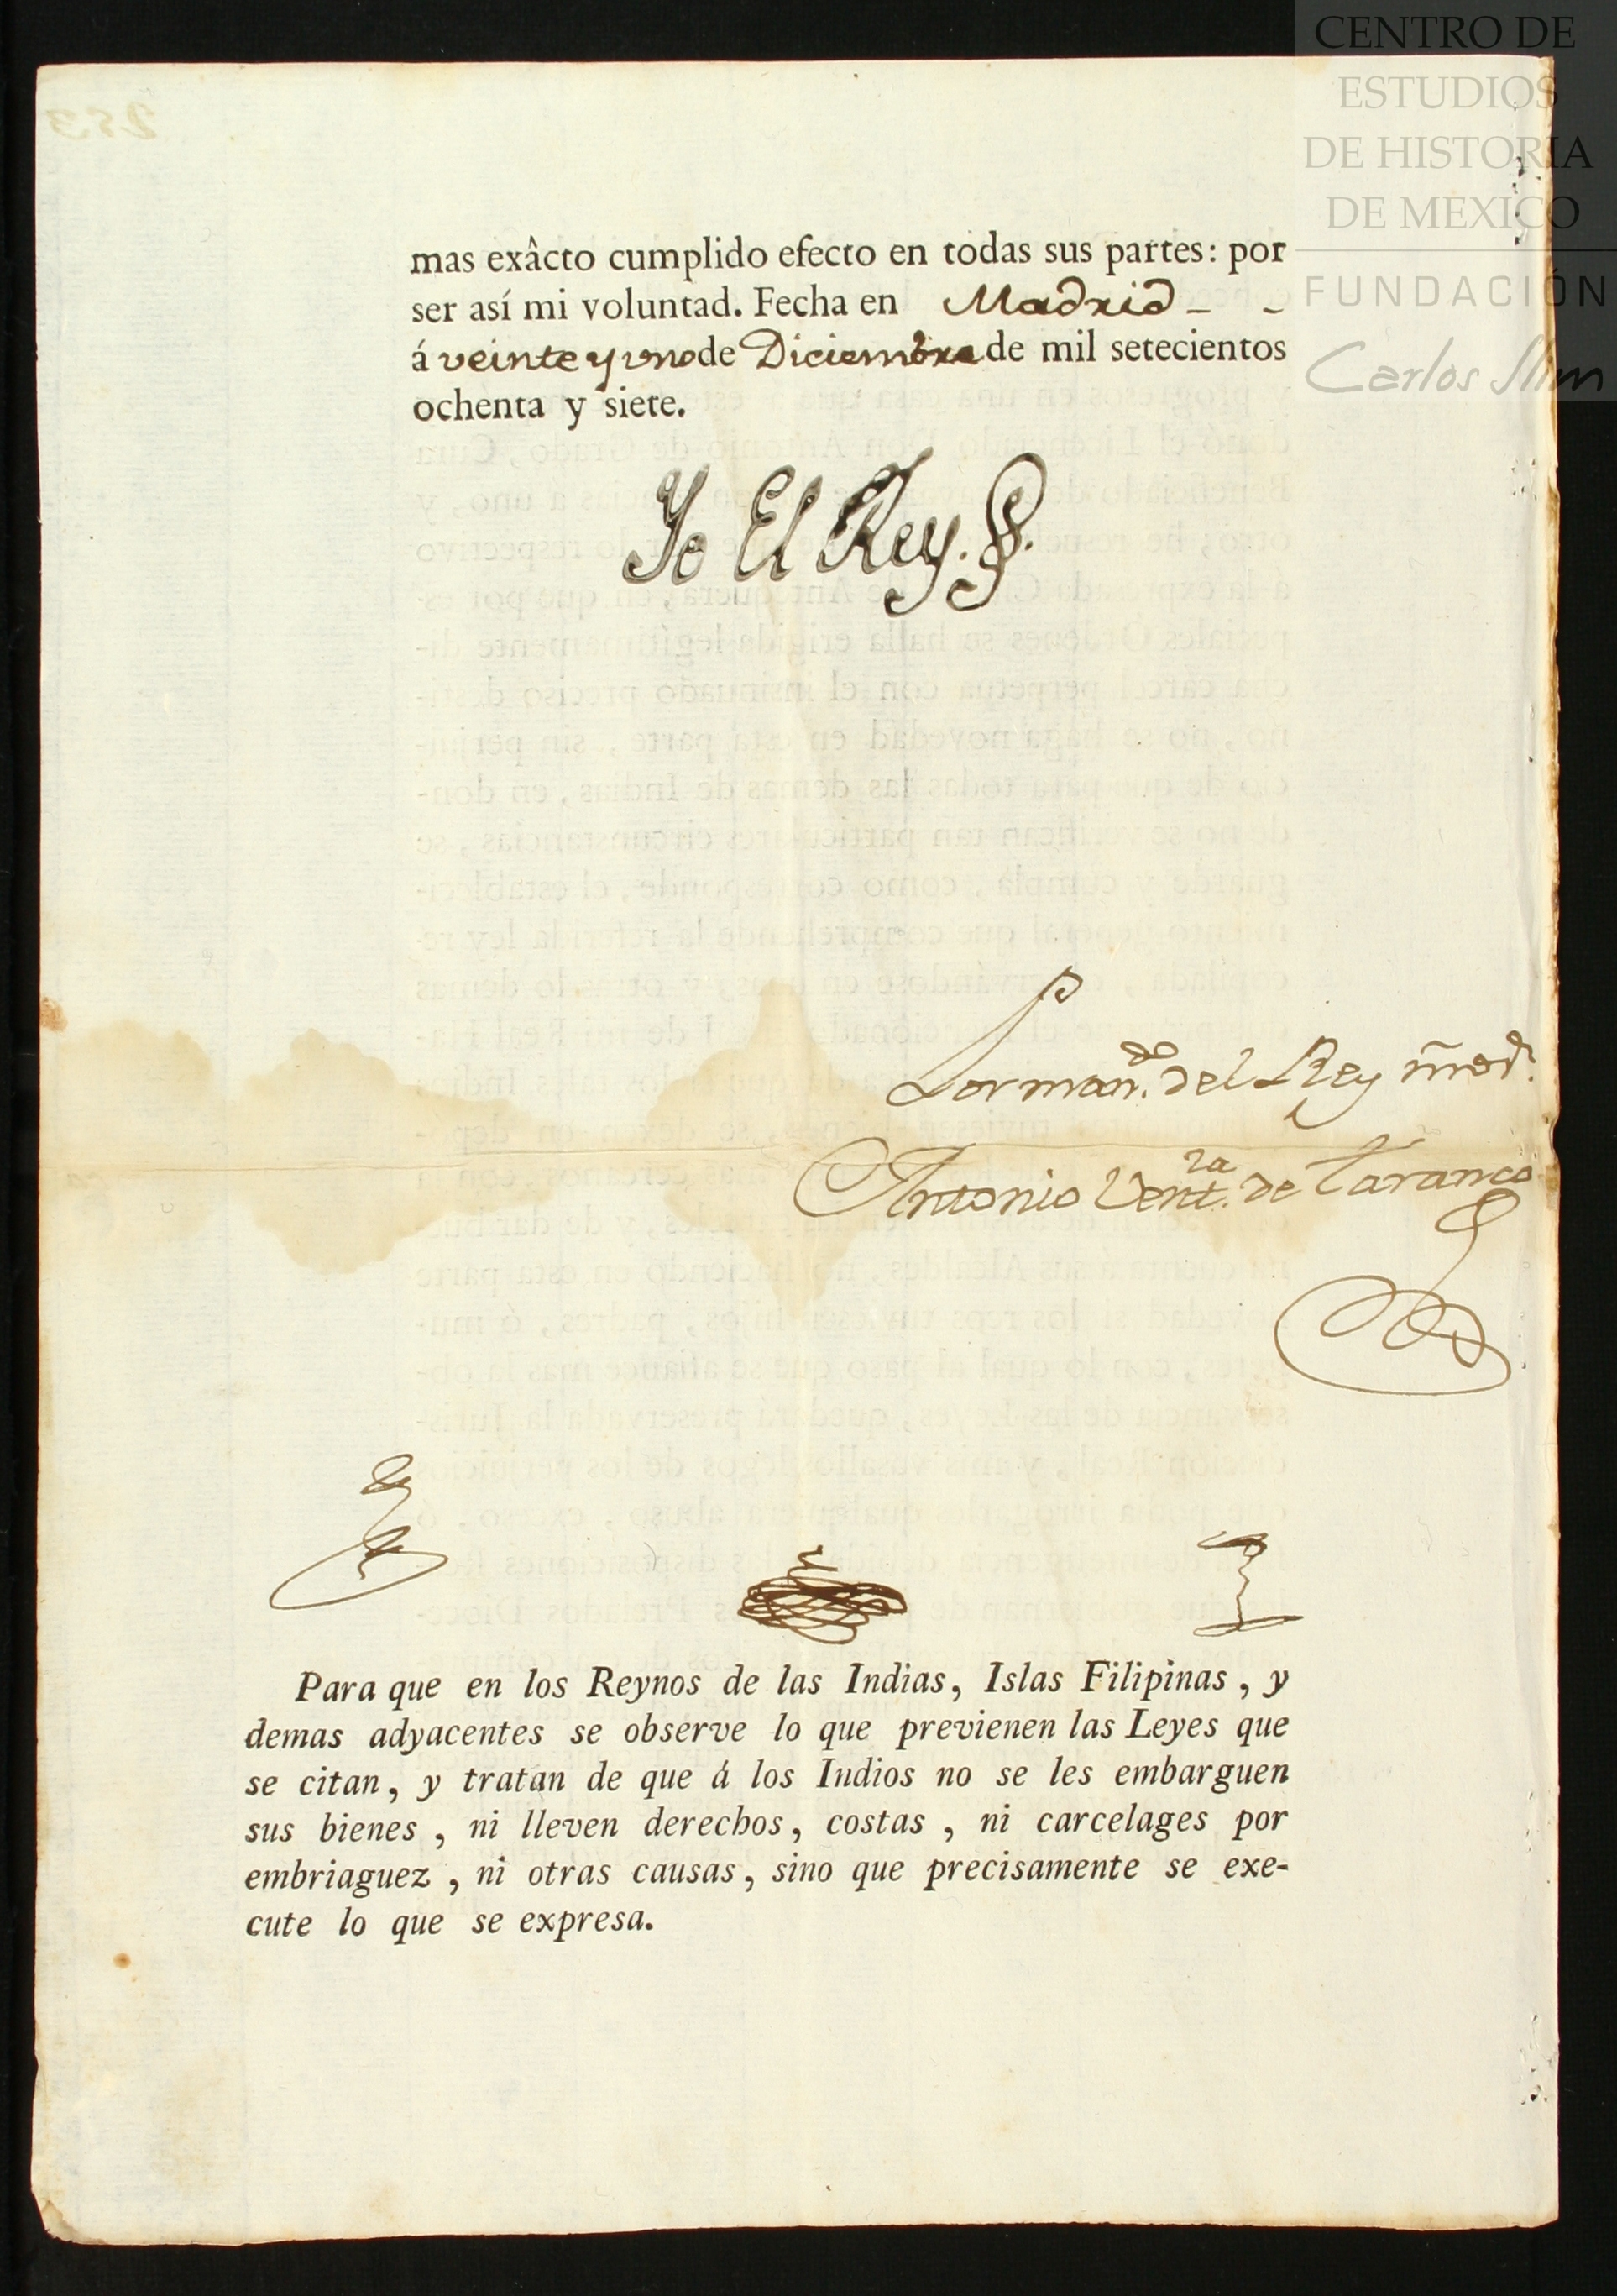 CENTRO DE
ESTUDIOS
DE HISTORIA
DE MEXICO
FUNDACIÓN
Carlos Slim
253
mas exâcto cumplido efecto en todas sus partes: por
ser así mi voluntad. Fecha en Madrid - -
á veinte y uno de Diciembre de mil setecientos
ochenta y siete.
Yo El Rey.
Por man.do del Rey
Antonio Vent.ra de Taranco
Para que en los Reynos de las Indias, Islas Filipinas, y
demas adyacentes se observe lo que previenen las Leyes que
se citan, y tratan de que á los Indios no se les embarguen
sus bienes, ni lleven derechos, costas, ni carcelages por
embriaguez, ni otras causas, sino que precisamente se exe-
cute lo que se expresa.